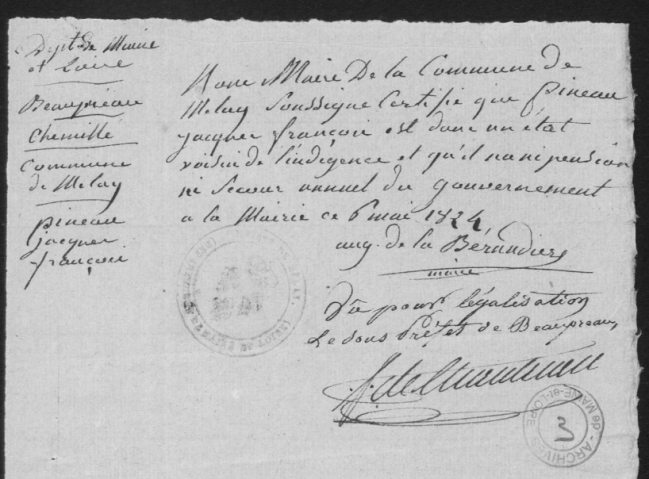 Dept. de Maine
et Loire
Beaupréau
Chemillé
Commune
de Melay
pineau
jacques
françois
Nous Maire De la Commune de
Melay Soussigné Certifie que pineau
jacques françois est dans un état
voisin de l'indigence et qu'il na ni pension
ni Secour annuel du gouvernement
a la Mairie ce 6 mai 1824
aug. de la Béraudière
maire
Vû pour légalisation
Le Sous Préfet de Beaupreau
ARCHIVES
de MAINE-et-LOIRE